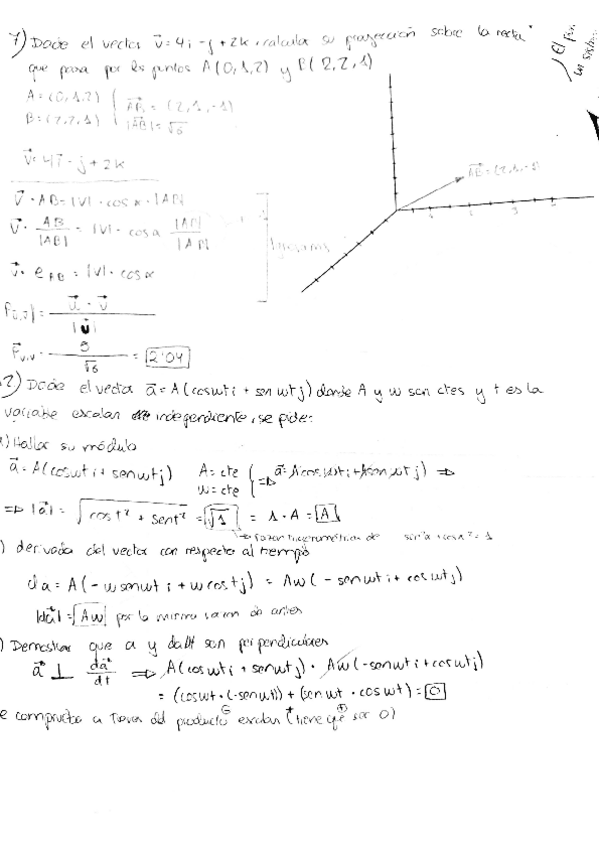 7) Dado el vector v = 4i - j + 2k, calcular su proyección sobre la recta
que pasa por los puntos A(0,1,2) y B(2,2,1)
El
un
A = (0,1,2)
B = (2,2,1)
AB = (2,1,-1)
|AB| = √6
AB = (2,1,-1)
v = 4i - j + 2k
v · AB = |v| · cos α · |AB|
v · AB/|AB| = |v| · cos α |AB|/|AB|
v · e AB = |v| · cos α
= u · v / |u|
= 5/√6 = 2'04
2) Dado el vector a = A(cos wt i + sen wt j) donde A y w son ctes y t es la
variable escalar independiente, se pide:
) Hallar su módulo
a = A(cos wt i + sen wt j) A = cte
w = cte
⇒ a = A cos wt i + A sen wt j) ⇒
⇒ |a| = √cos t² + sen t² = √1 = 1 · A = A
trigonométrica de sen²α + cos²α = 1
) derivada del vector con respecto al tiempo
da = A(-w sen wt i + w cos t j) = Aw(-sen wt i + cos wt j)
|da| = Aw por la misma razón de antes
) Demostrar que a y da/dt son perpendiculares
a ⊥ da/dt ⇒ A(cos wt i + sen wt j) · Aw(-sen wt i + cos wt j)
= (cos wt · (-sen wt)) + (sen wt · cos wt) = 0
e comprueba a traves del producto escalar (tiene que ser 0)